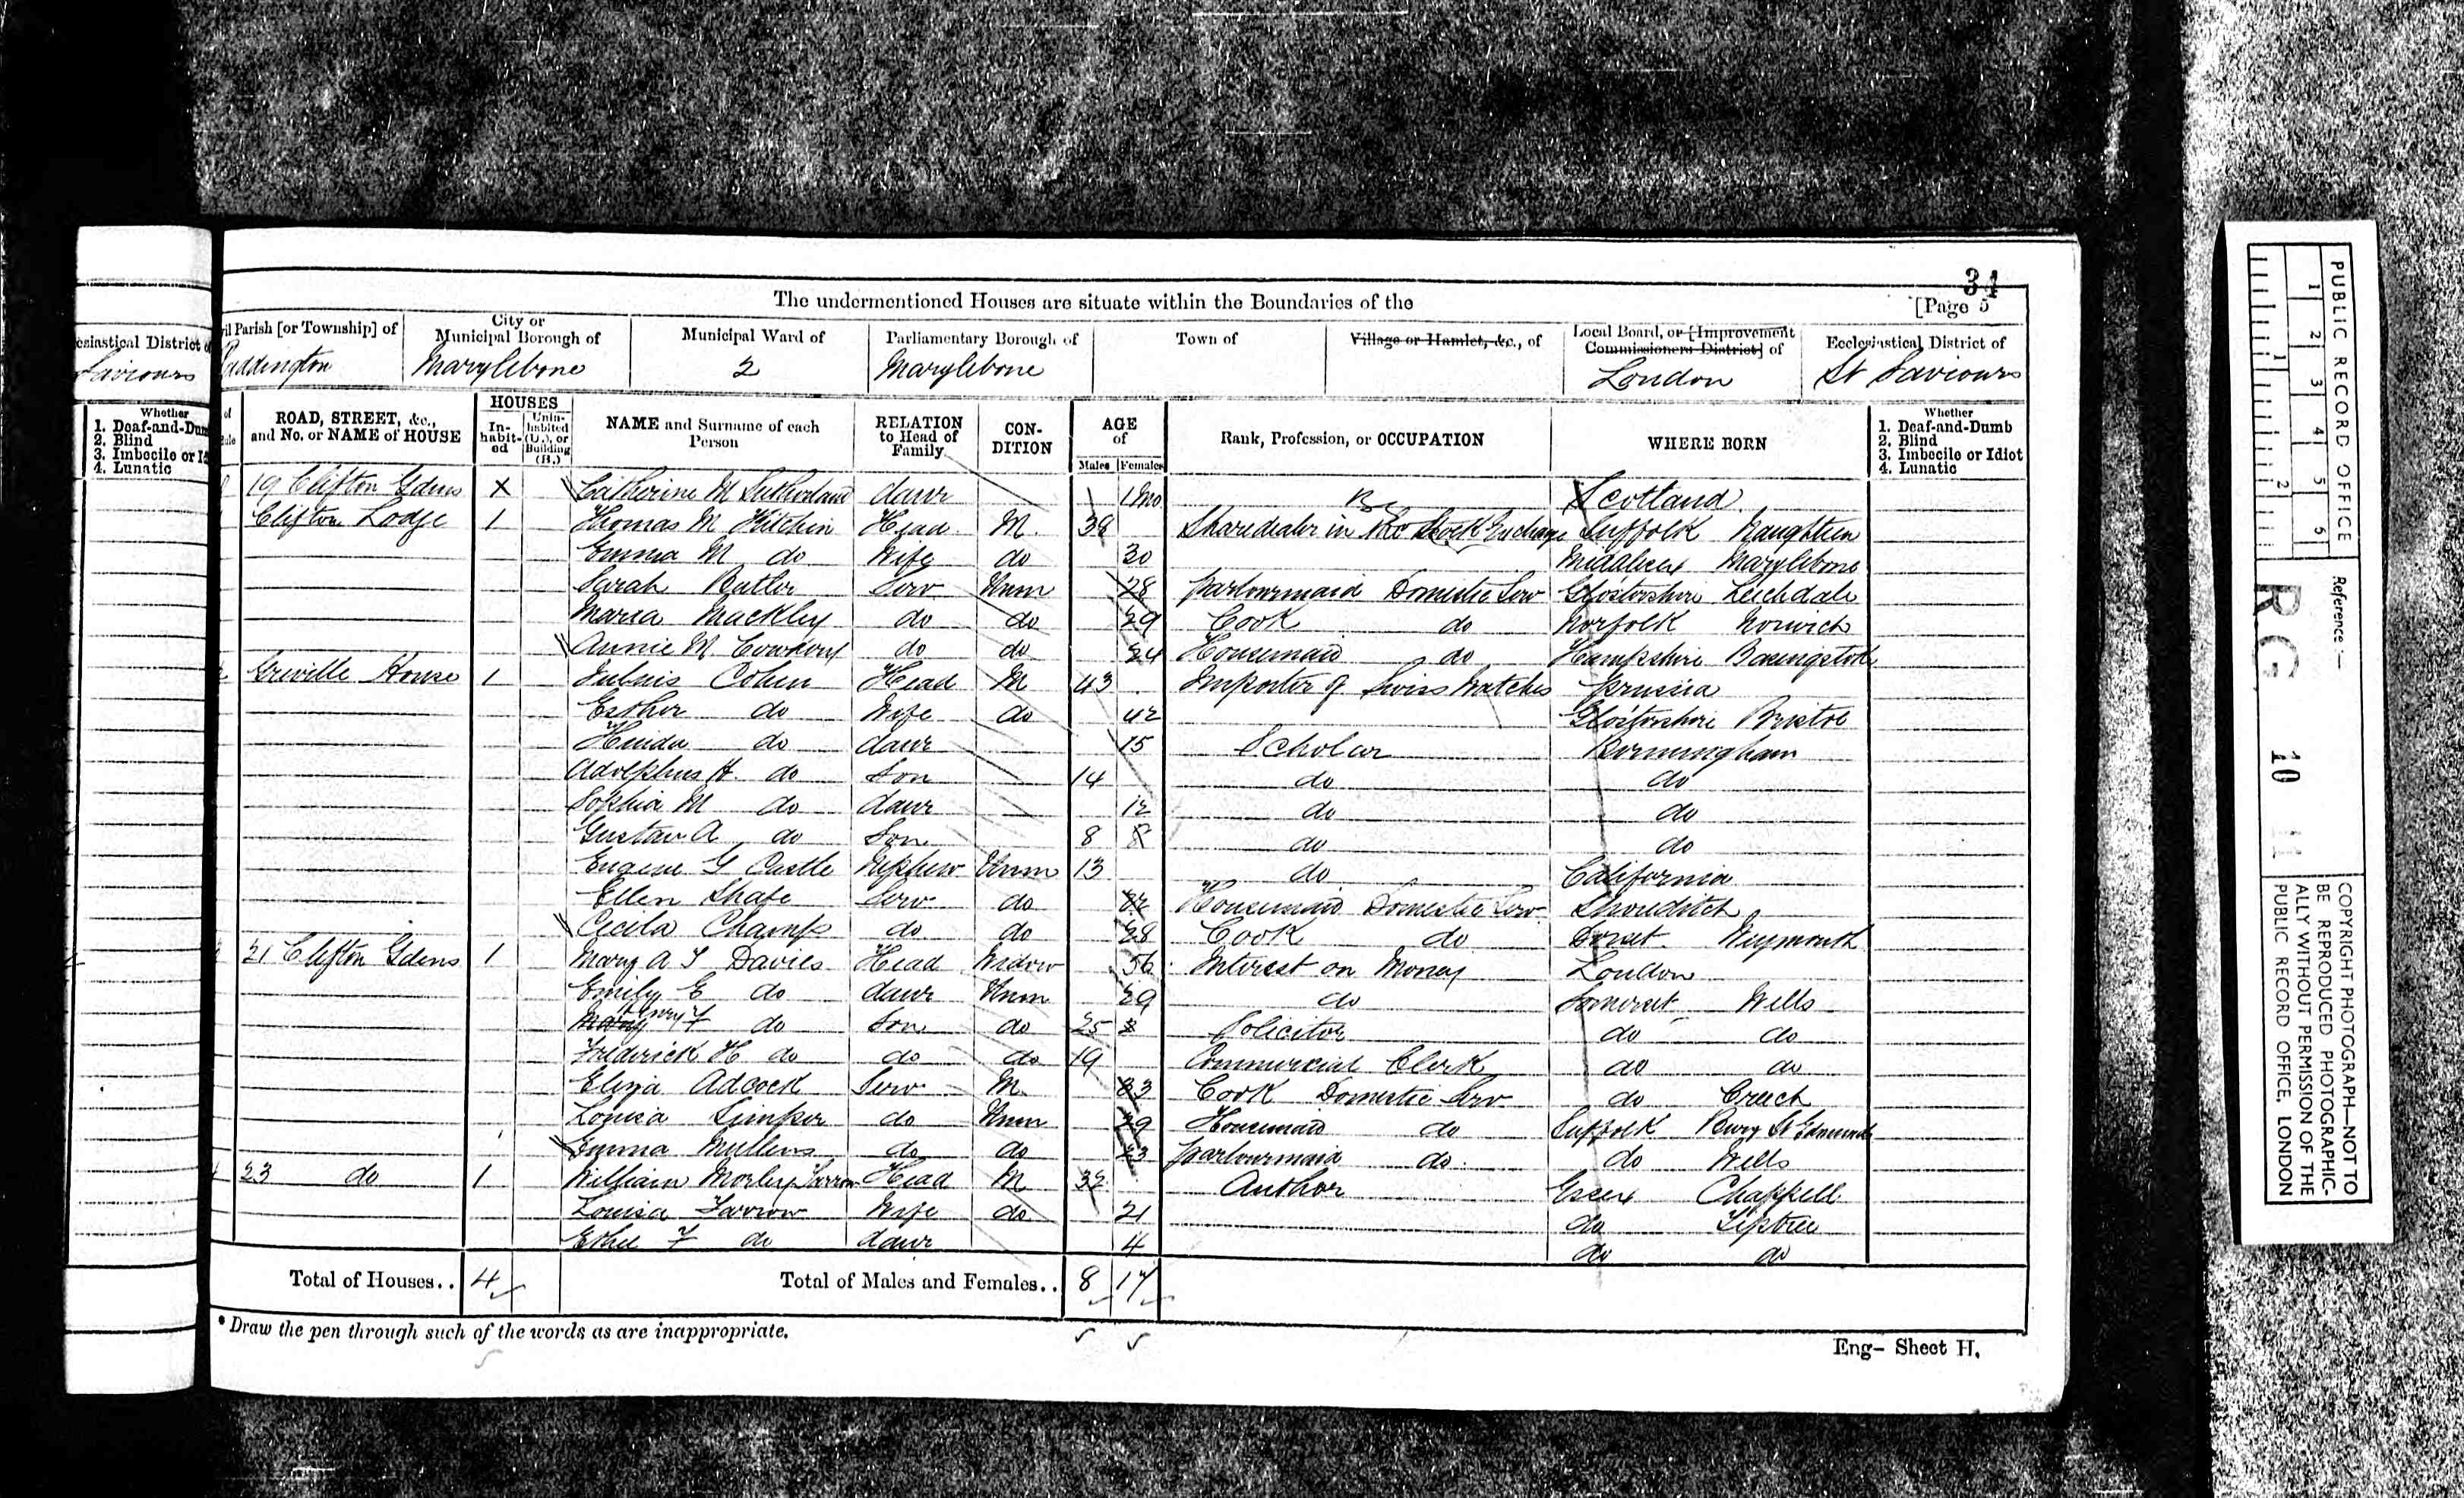 34
The undermentioned Houses are situate within the Boundaries of the [Page 5
esiastical District of Saviours
il Parish [or Township] of Paddington
City or Municipal Borough of Marylebone
Municipal Ward of 2
Parliamentary Borough of Marylebone
Town of
Village or Hamlet, &c., of
Local Board, or [Improvement Commissioners District] of London
Ecclesiastical District of St Saviours
Whether
1. Deaf-and-Dum
2. Blind
3. Imbecile or Id
4. Lunatic
ROAD, STREET, &c., and No. or NAME of HOUSE
HOUSES
In-habit-ed
Unin-habited (U.), or Building (B.)
NAME and Surname of each Person
RELATION to Head of Family
CON-DITION
AGE of
Males Females
Rank, Profession, or OCCUPATION
WHERE BORN
Whether
1. Deaf-and-Dumb
2. Blind
3. Imbecile or Idiot
4. Lunatic
19 Clifton Gdens X Catherine M Sutherland daur 1 mo Scotland
Clifton Lodge 1 Thomas M Hitchin Head M 38 Sharedealer in the Stock Exchange Suffolk Naughton
Emma M do Wife do 30 Middlesex Marylebone
Sarah Butler Serv Unm 28 Parlourmaid Domestic Serv Glostershire Leichdale
Maria Mackley do do 29 Cook do Norfolk Norwich
Annie M do do 24 Housemaid do Hampshire Basingstoke
Greville House 1 Julius Cohen Head M 43 Importer of Swiss Watches Prussia
Esther do Wife do 42 Glostershire Bristol
do daur 15 Scholar Birmingham
Adolphus H do Son 14 do do
Sophia M do daur 12 do do
Gustav A do Son 8 8 do do
Eugene G Castle Nephew Unm 13 do California
Ellen Serv do Housemaid Domestic Serv Shoreditch
Cecila Champ do do 28 Cook do Dorset Weymouth
21 Clifton Gdens 1 Mary A Davies Head Widow 56 Interest on Money London
Emily E do daur Unm 29 do Somerset Wells
do Son do 25 Solicitor do do
Frederick H do do do 19 Commercial Clerk do do
Eliza Adcock Serv M 33 Cook Domestic Serv do Creech
Louisa Simper do Unm 29 Housemaid do Suffolk Bury St Edmunds
Emma Mullens do do 23 Parlourmaid do do Wells
23 do 1 William Morley Farrow Head M 32 Author Essex Chappell
Louisa Farrow Wife do 21 do Tiptree
Ethel F do daur 4 do do
Total of Houses.. 4 Total of Males and Females.. 8 17
* Draw the pen through such of the words as are inappropriate.
Eng- Sheet H.
PUBLIC RECORD OFFICE
1 2 3 4 5 6
1 2
Reference:—
R.G. 10
COPYRIGHT PHOTOGRAPH—NOT TO
BE REPRODUCED PHOTOGRAPHIC-
ALLY WITHOUT PERMISSION OF THE
PUBLIC RECORD OFFICE, LONDON